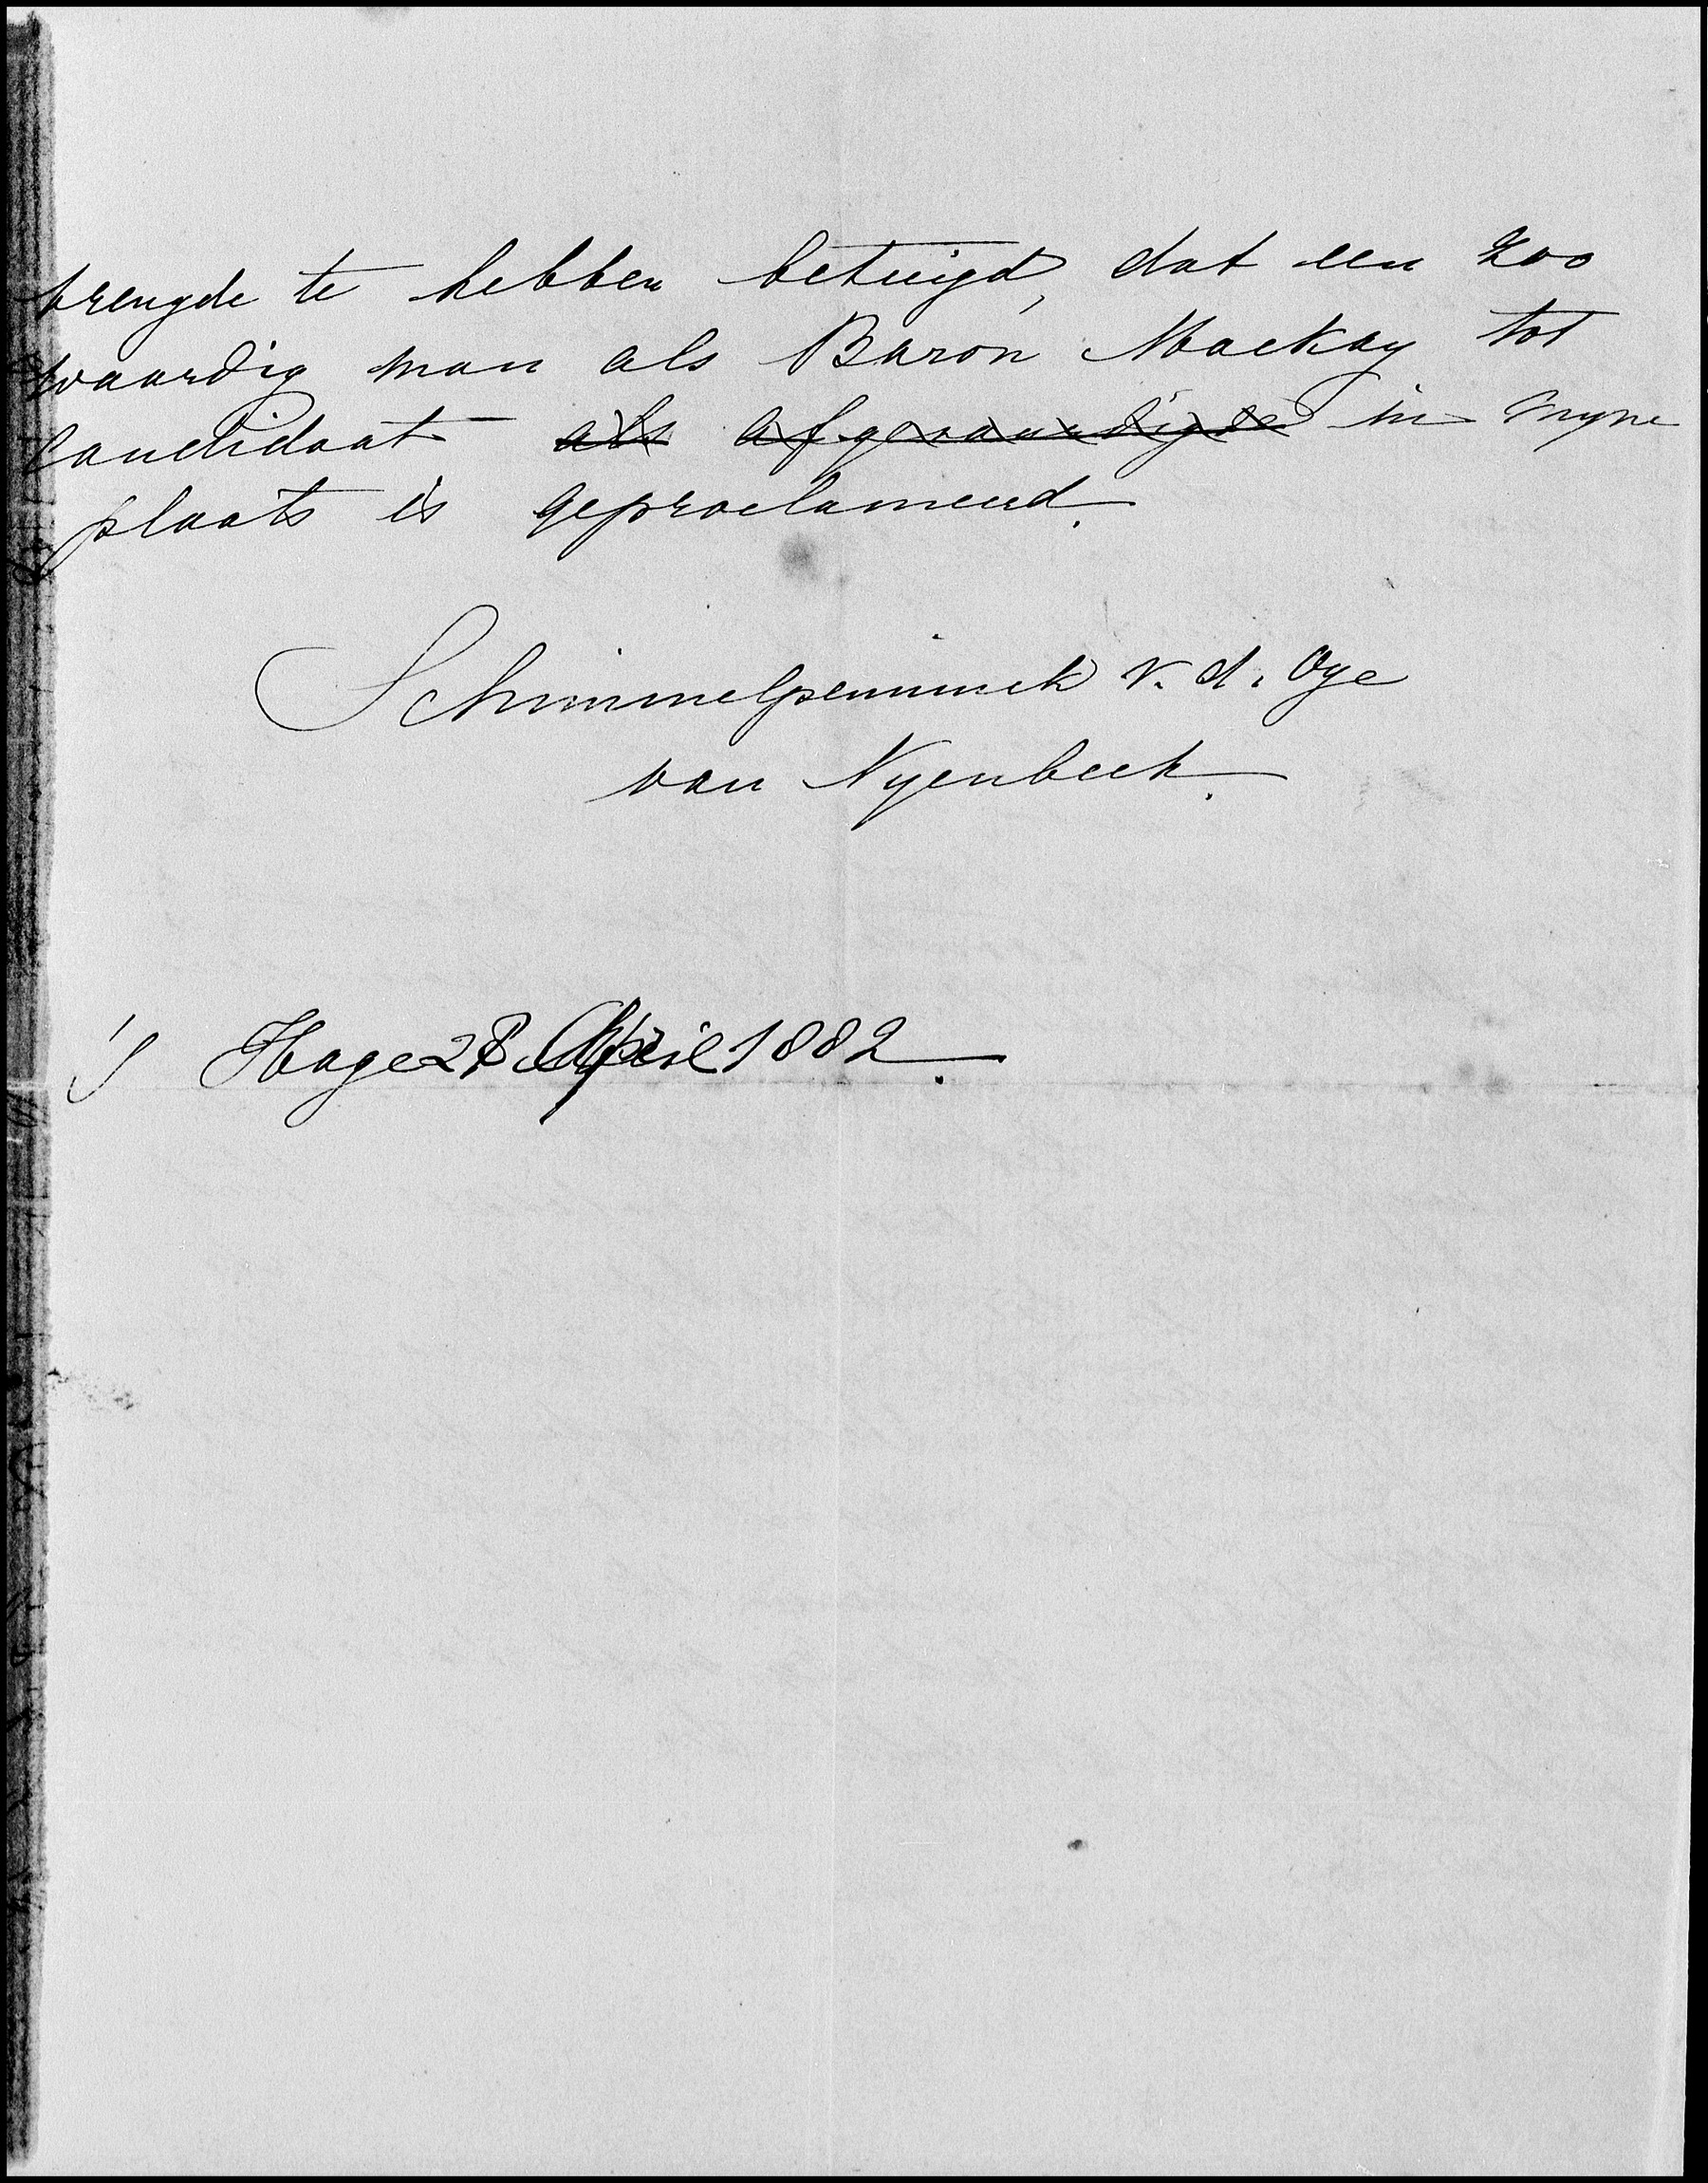 vreugde te hebben betuigd, dat een zoo
waardig man als Baron Mackay tot
Candidaat als afgevaardigde in myne
plaats is geproclameerd.
Schimmelpenninck v. d. Oye
van Nyenbeek.
's Hage 28 April 1882.